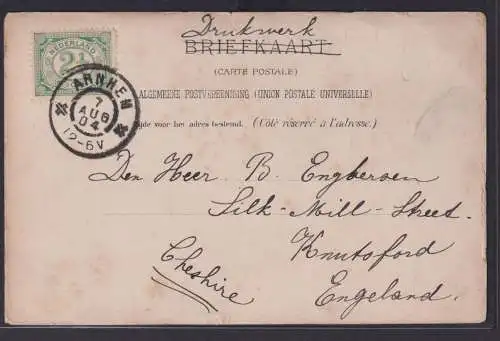 Drukwerk
BRIEFKAART
(CARTE POSTALE)
ALGEMEENE POSTVEREENIGING (UNION POSTALE UNIVERSELLE)
Zijde voor het adres bestemd. (Côté réservé à l'adresse.)
NEDERLAND
2½
ARNHEM
7
AUG
04
12-6V
Den Heer B. Engbersen
Silk-Mill-Street.
Knutsford
Cheshire
Engeland.